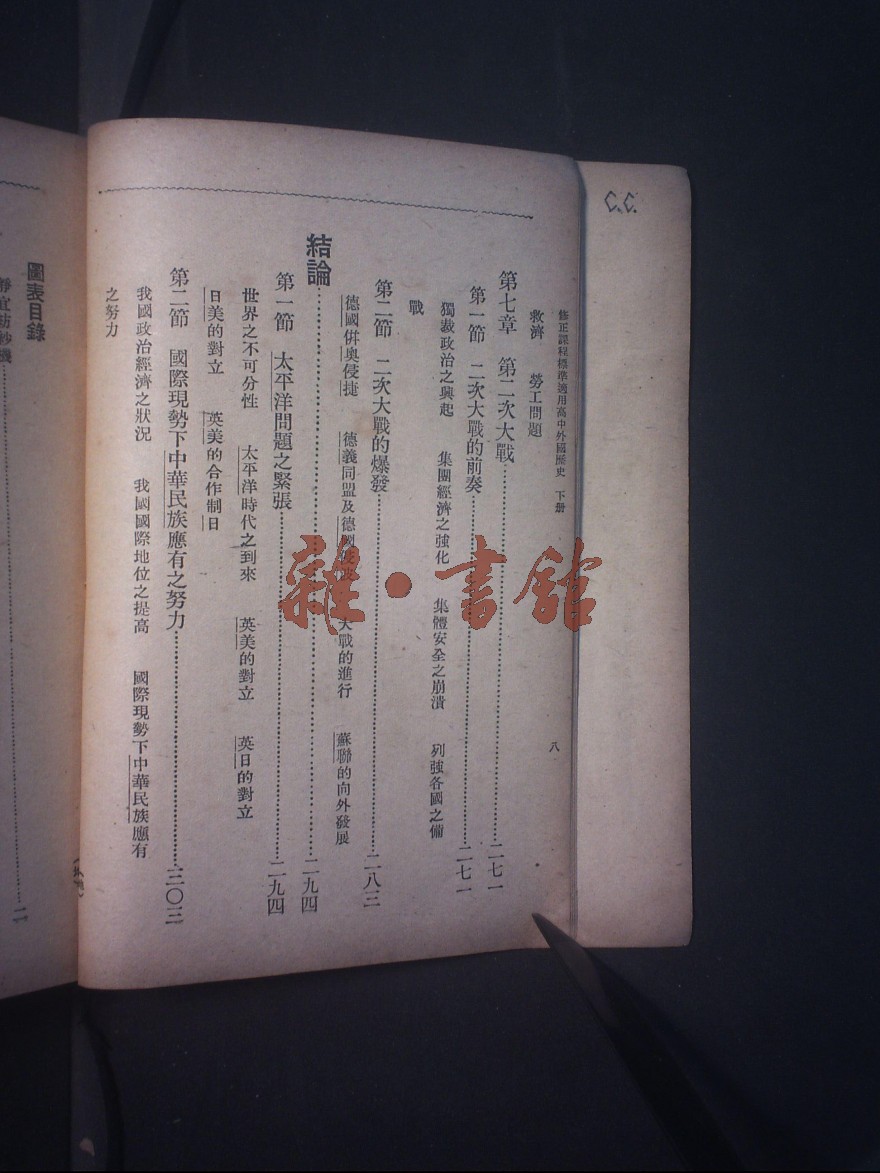 C.C.
修正課程標準適用高中外國歷史 下册
八
救濟 勞工問題
第七章 第二次大戰 二七一
第一節 二次大戰的前奏 二七一
獨裁政治之興起 集團經濟之強化 集體安全之崩潰 列強各國之備
戰
第二節 二次大戰的爆發 二八三
德國併奧侵捷 德義同盟及德國 大戰的進行 蘇聯的向外發展
結論 二九四
第一節 太平洋問題之緊張 二九四
世界之不可分性 太平洋時代之到來 英美的對立 英日的對立
日美的對立 英美的合作制日
第二節 國際現勢下中華民族應有之努力 三〇三
我國政治經濟之狀況 我國國際地位之提高 國際現勢下中華民族應有
之努力
圖表目錄
雜·書館